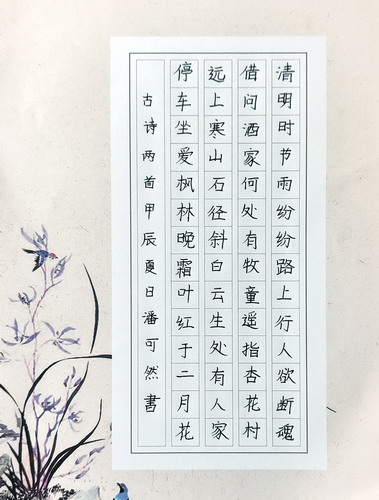 清明时节雨纷纷路上行人欲断魂
借问酒家何处有牧童遥指杏花村
远上寒山石径斜白云生处有人家
停车坐爱枫林晚霜叶红于二月花
古诗两首甲辰夏日潘可然书